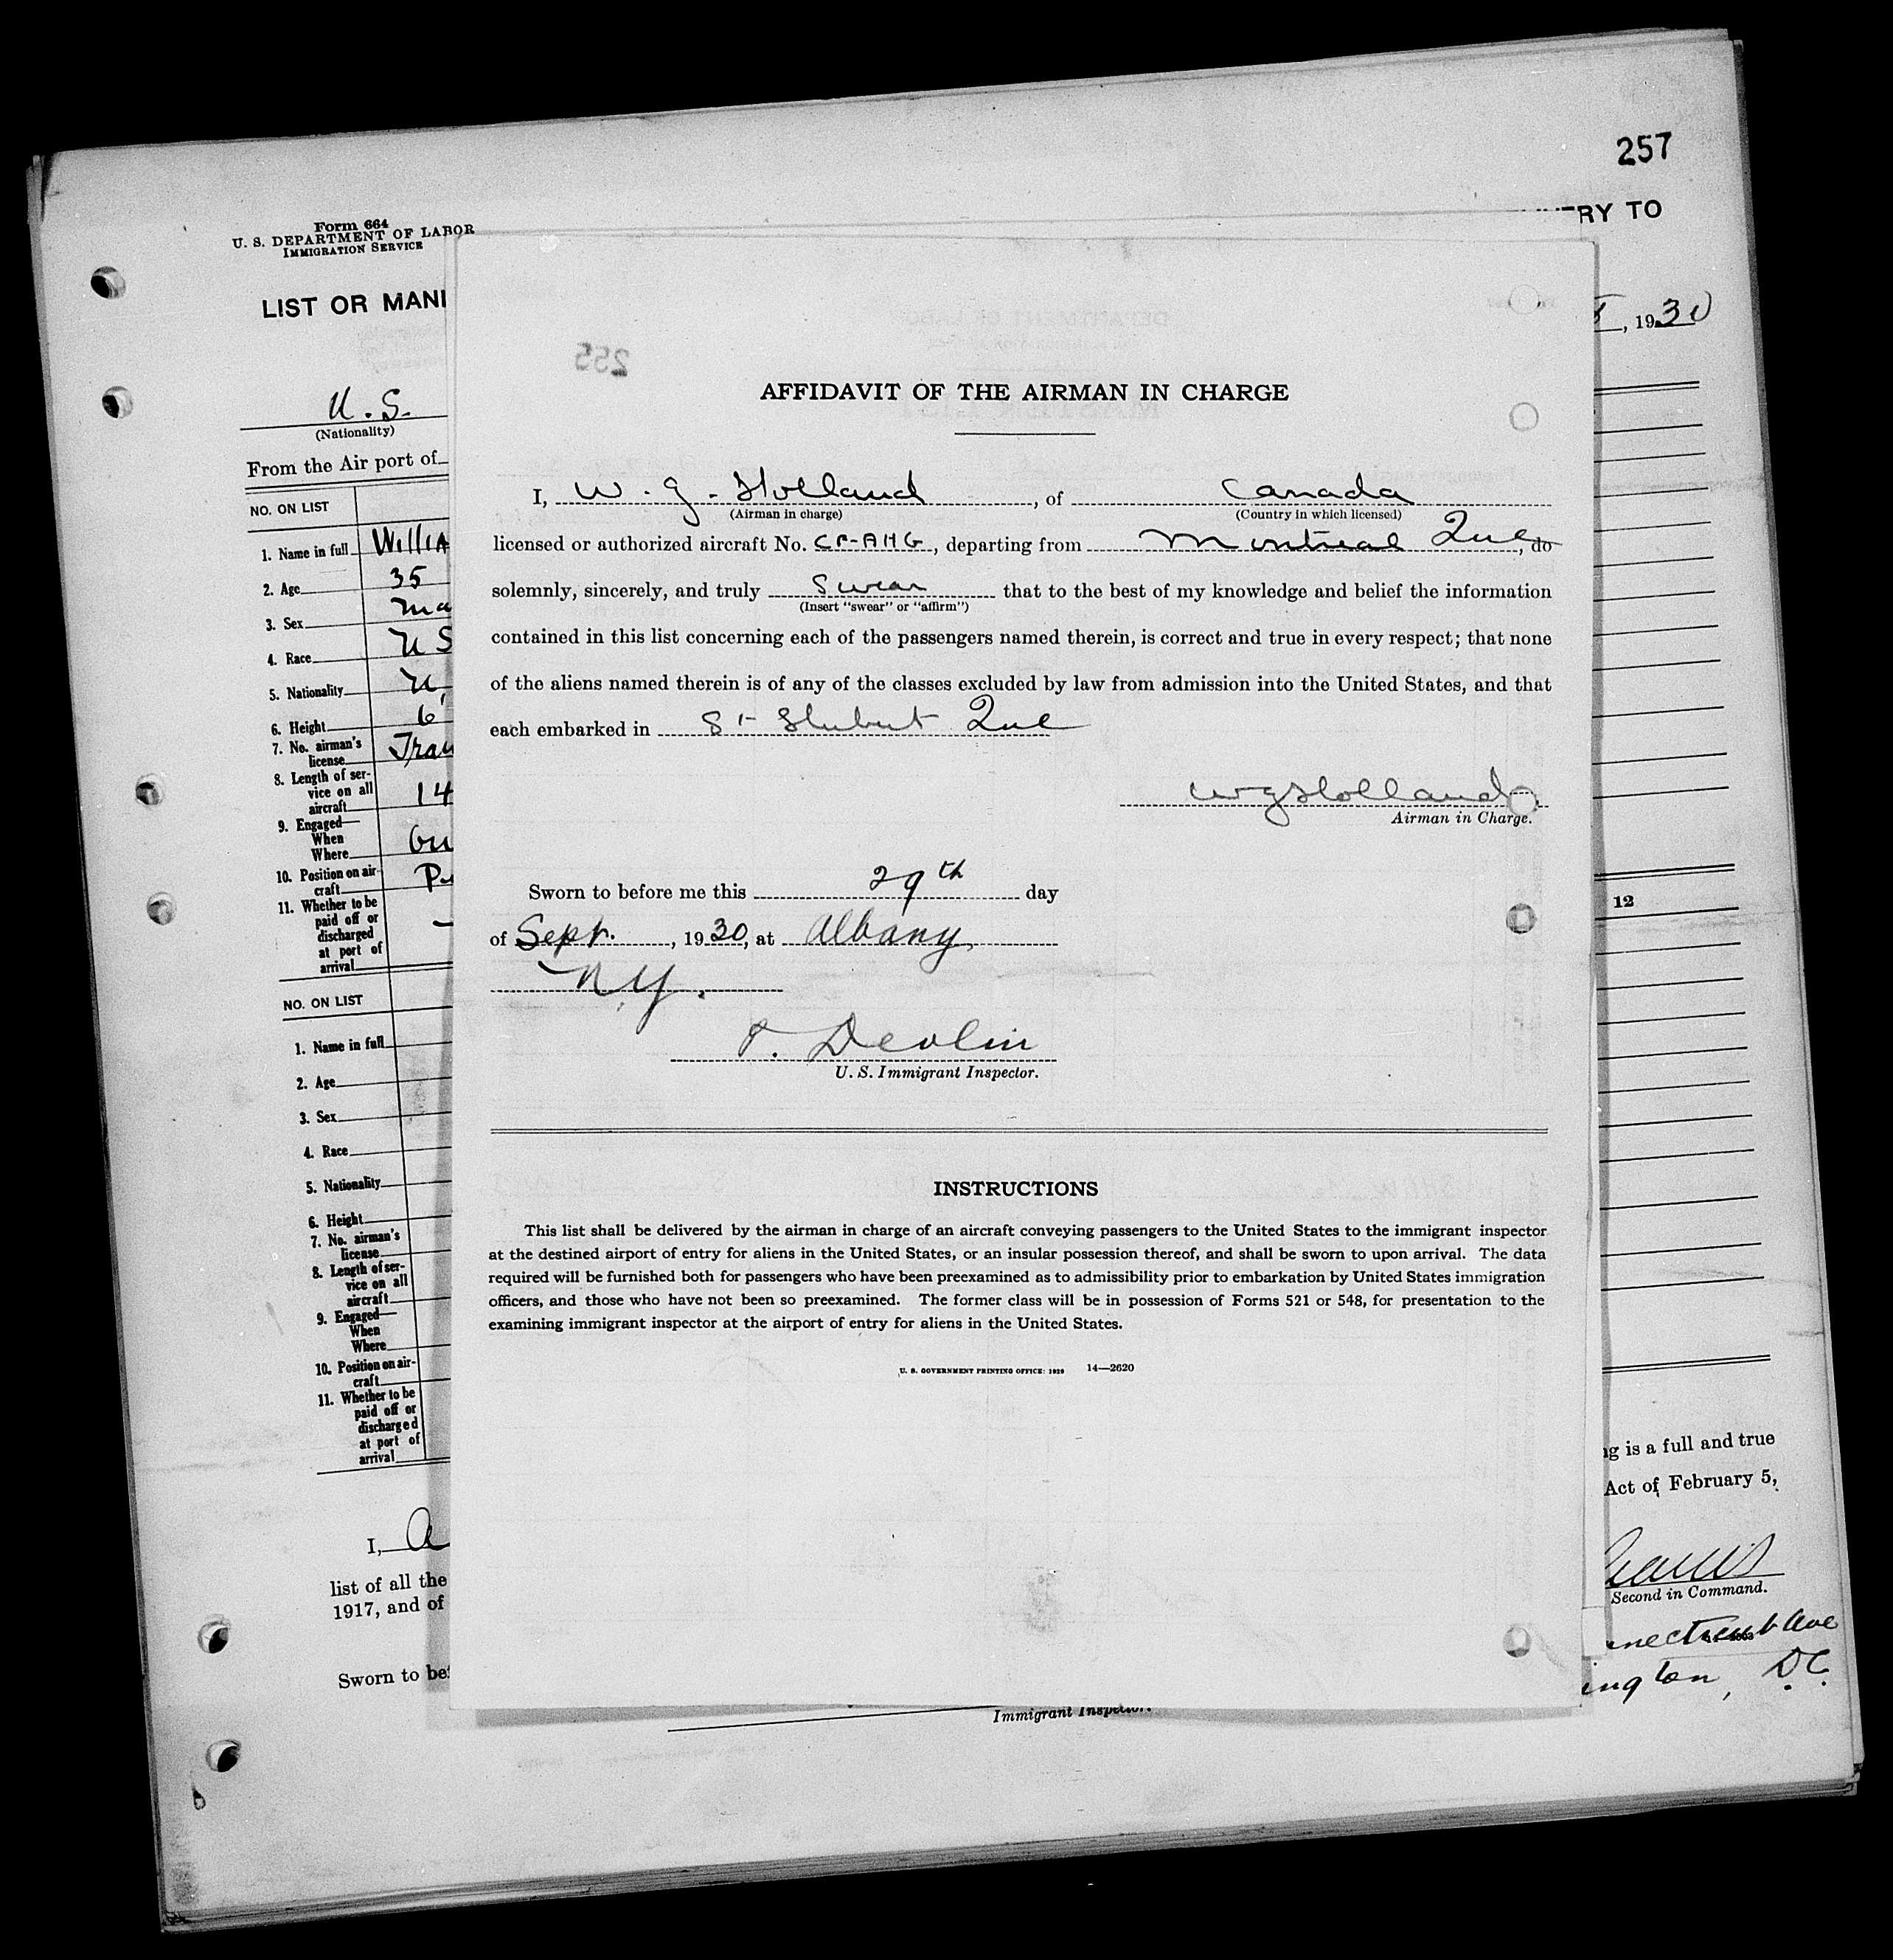 257
Form 664
U. S. DEPARTMENT OF LABOR
IMMIGRATION SERVICE
RY TO
LIST OR MANI
, 1930
U. S.
(Nationality)
From the Air port of
NO. ON LIST
1. Name in full WILLIA
2. Age 35
3. Sex ma
4. Race U S
5. Nationality U.
6. Height 6'
7. No. airman's
license Tran
8. Length of ser-
vice on all
aircraft 14
9. Engaged—
When
Where
10. Position on air-
craft P
11. Whether to be
paid off or
discharged
at port of
arrival
12
NO. ON LIST
1. Name in full
2. Age
3. Sex
4. Race
5. Nationality
6. Height
7. No. airman's
license
8. Length of ser-
vice on all
aircraft
9. Engaged—
When
Where
10. Position on air-
craft
11. Whether to be
paid off or
discharged
at port of
arrival
I, a
list of all the
1917, and of
Sworn to bef
ng is a full and true
Act of February 5,
Second in Command.
nnecticut Ave
ington, D.C.
Immigrant Inspector.
255
AFFIDAVIT OF THE AIRMAN IN CHARGE
I, W. G. Holland, of Canada
(Airman in charge) (Country in which licensed)
licensed or authorized aircraft No. CF-AHG, departing from Montreal Que, do
solemnly, sincerely, and truly Swear that to the best of my knowledge and belief the information
(Insert "swear" or "affirm")
contained in this list concerning each of the passengers named therein, is correct and true in every respect; that none
of the aliens named therein is of any of the classes excluded by law from admission into the United States, and that
each embarked in St Hubert Que
W G Holland
Airman in Charge.
Sworn to before me this 29th day
of Sept., 1930, at Albany,
N.Y.
P. Devlin
U. S. Immigrant Inspector.
INSTRUCTIONS
This list shall be delivered by the airman in charge of an aircraft conveying passengers to the United States to the immigrant inspector
at the destined airport of entry for aliens in the United States, or an insular possession thereof, and shall be sworn to upon arrival. The data
required will be furnished both for passengers who have been preexamined as to admissibility prior to embarkation by United States immigration
officers, and those who have not been so preexamined. The former class will be in possession of Forms 521 or 548, for presentation to the
examining immigrant inspector at the airport of entry for aliens in the United States.
U. S. GOVERNMENT PRINTING OFFICE: 1929 14—2620